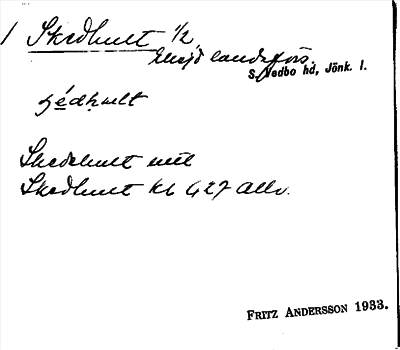 1 Skedhult 1/2
landsförs.
S. Vedbo hd, Jönk. l.
Skedehult
Skedhult kb 427 Allv.
FRITZ ANDERSSON 1933.